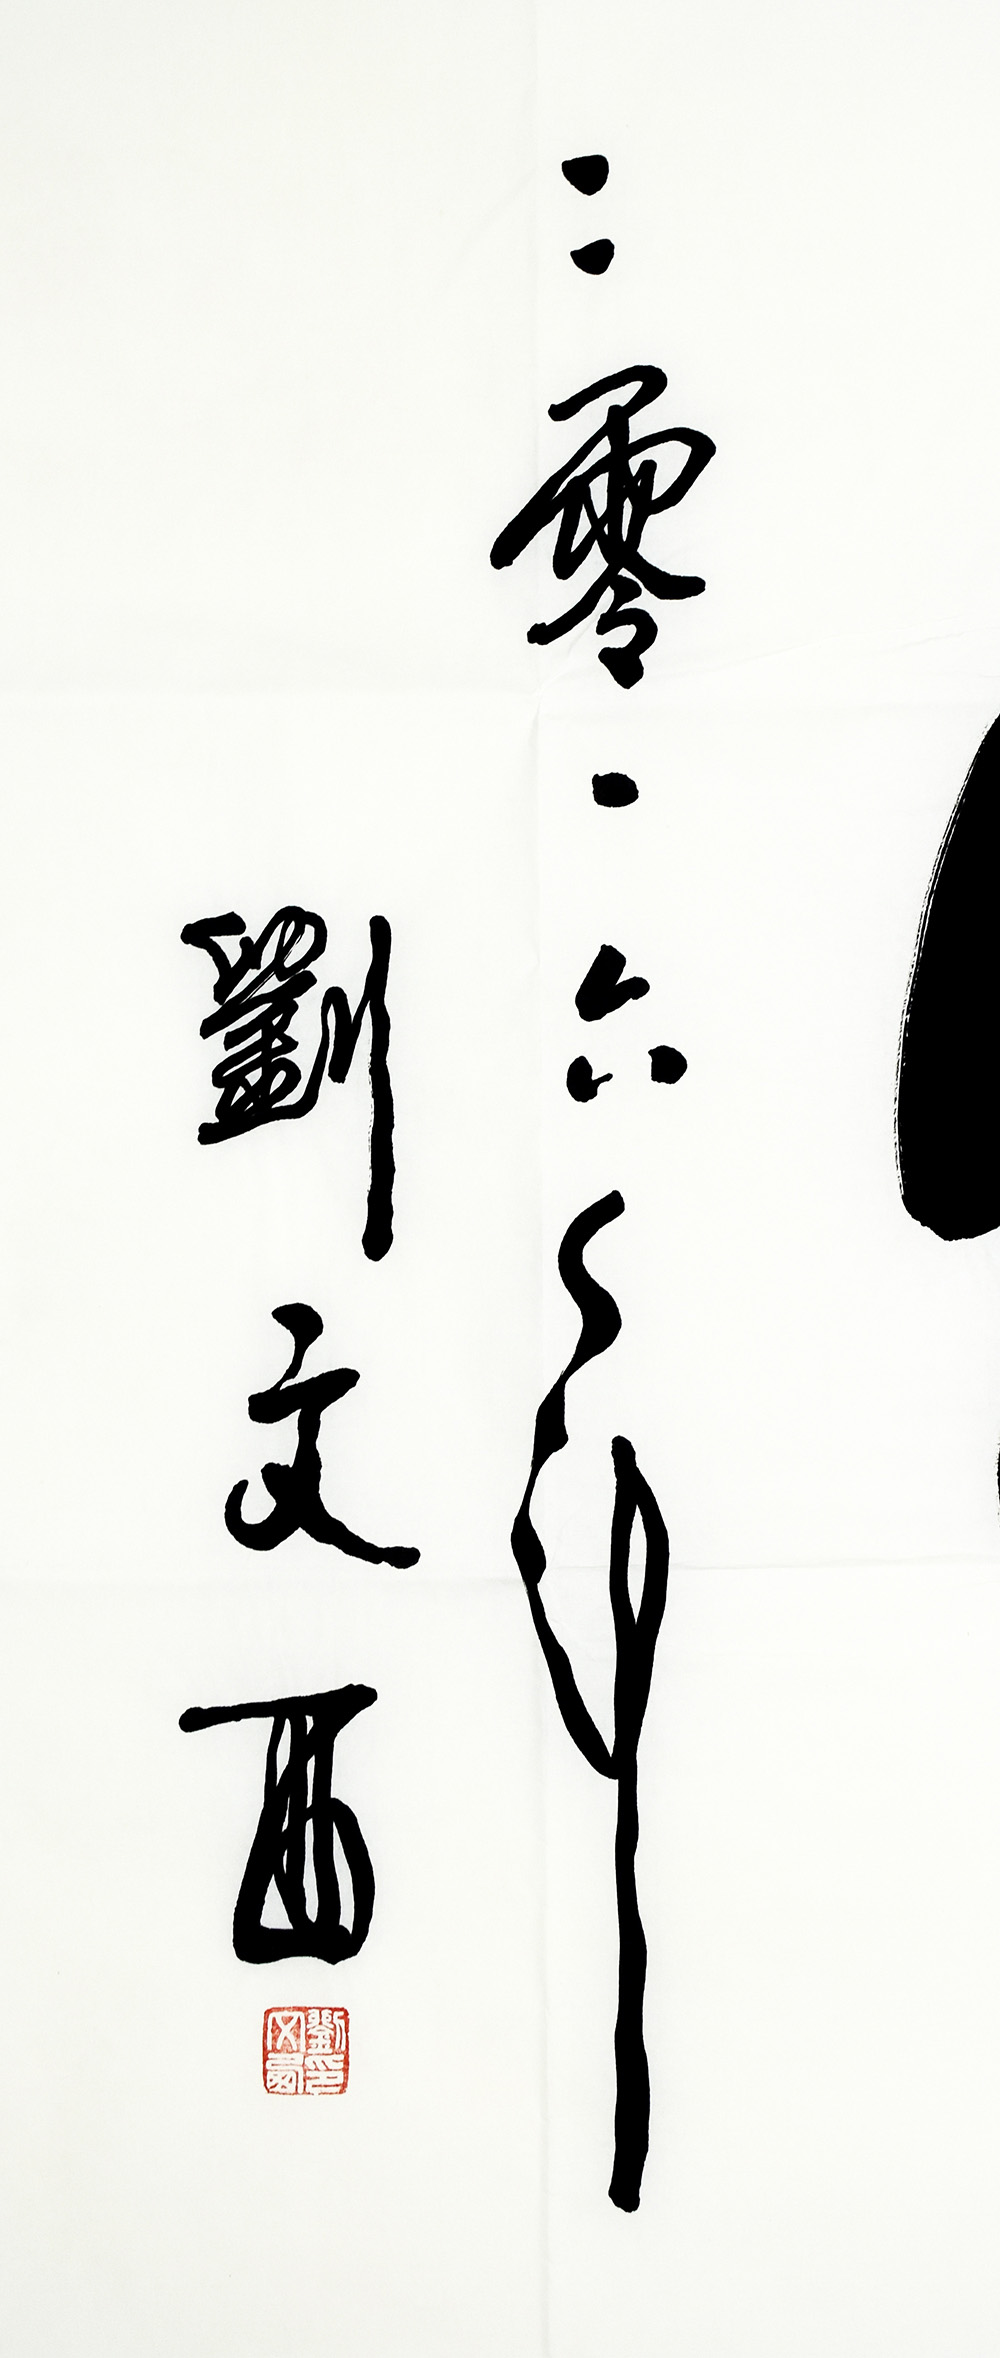 二零一六年
劉文西
劉文西印